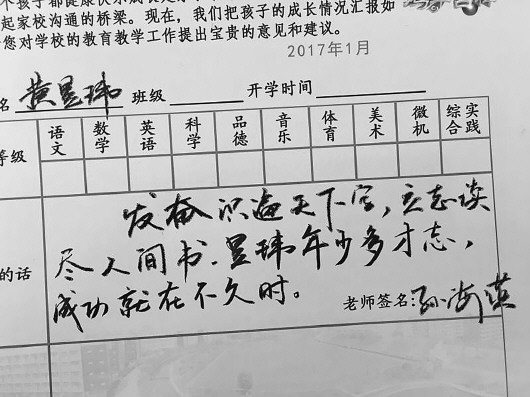 个孩子都健康快乐成长是
起家校沟通的桥梁。现在,我们把孩子的成长情况汇报如
您对学校的教育教学工作提出宝贵的意见和建议。
2017年1月
名 黄昱玮 班级 开学时间
等级 语文 数学 英语 科学 品德 音乐 体育 美术 微机 综合实践
发奋识遍天下字,立志读
的话 尽人间书.昱玮年少多才志,
成功就在不久时。
老师签名:孙海英